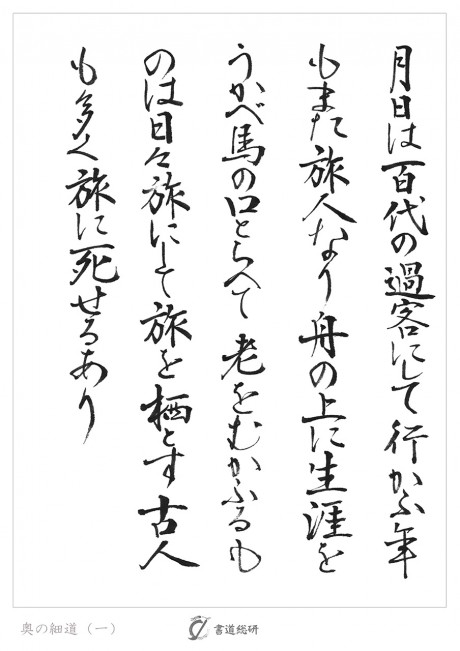 月日は百代の過客にして行かふ年
もまた旅人なり舟の上に生涯を
うかべ馬の口とらへて老をむかふるも
のは日々旅にして旅を栖とす古人
も多く旅に死せるあり
奥の細道（一）
書道総研